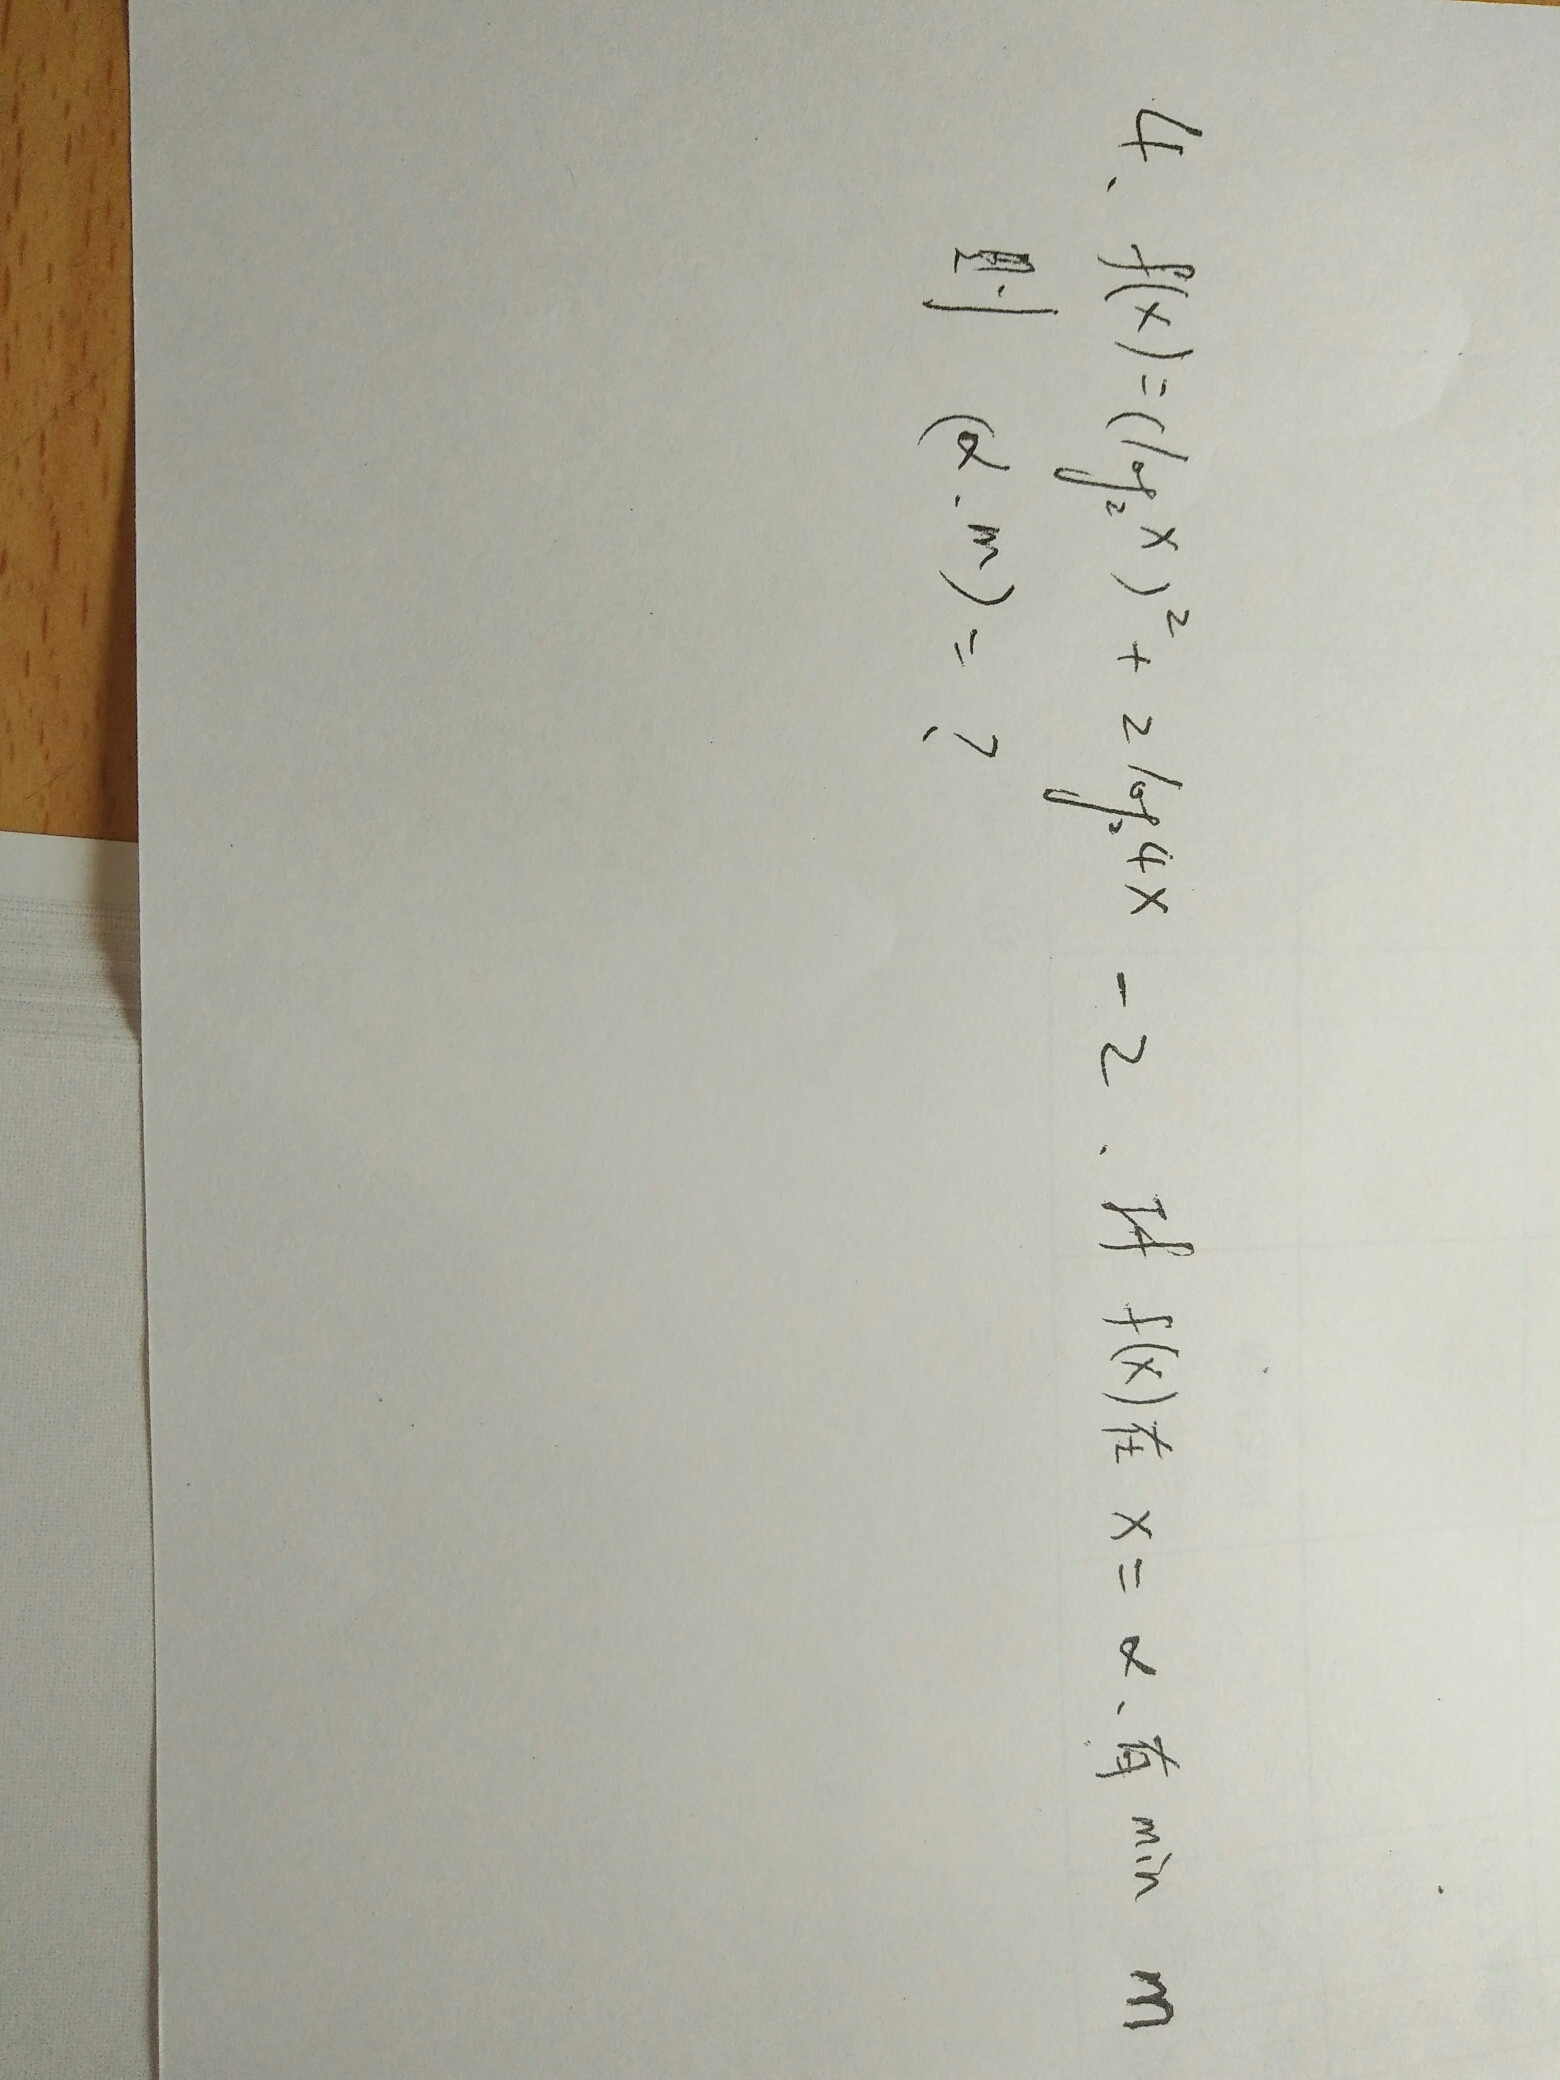 4、f(x)=(log₂x)²+2log₂4x-2. If f(x)在x=α、有min m
則 (α、m)=?